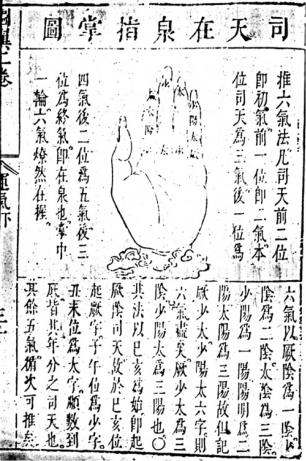 司天在泉指掌圖
推六氣法凡司天前二位
即初氣前一位即二氣本
位司天為三氣後一位為
四氣後二位為五氣後三
位為終氣即在泉也掌中
一輪六氣燎然在握
六氣以厥陰為一陰少
陰為二陰太陰為三陰
少陽為一陽陽明為二
陽太陽為三陽故但記
厥少太少陽太六字則
六氣盡矣厥少太為三
陰少陽太為三陽也○
其法以巳亥為始即起
厥陰司天故於巳亥位
起厥字子午位為少字
丑未位為太字順數到
底皆其年分之司天也
其餘五氣循次可推矣
翼二卷
運氣下